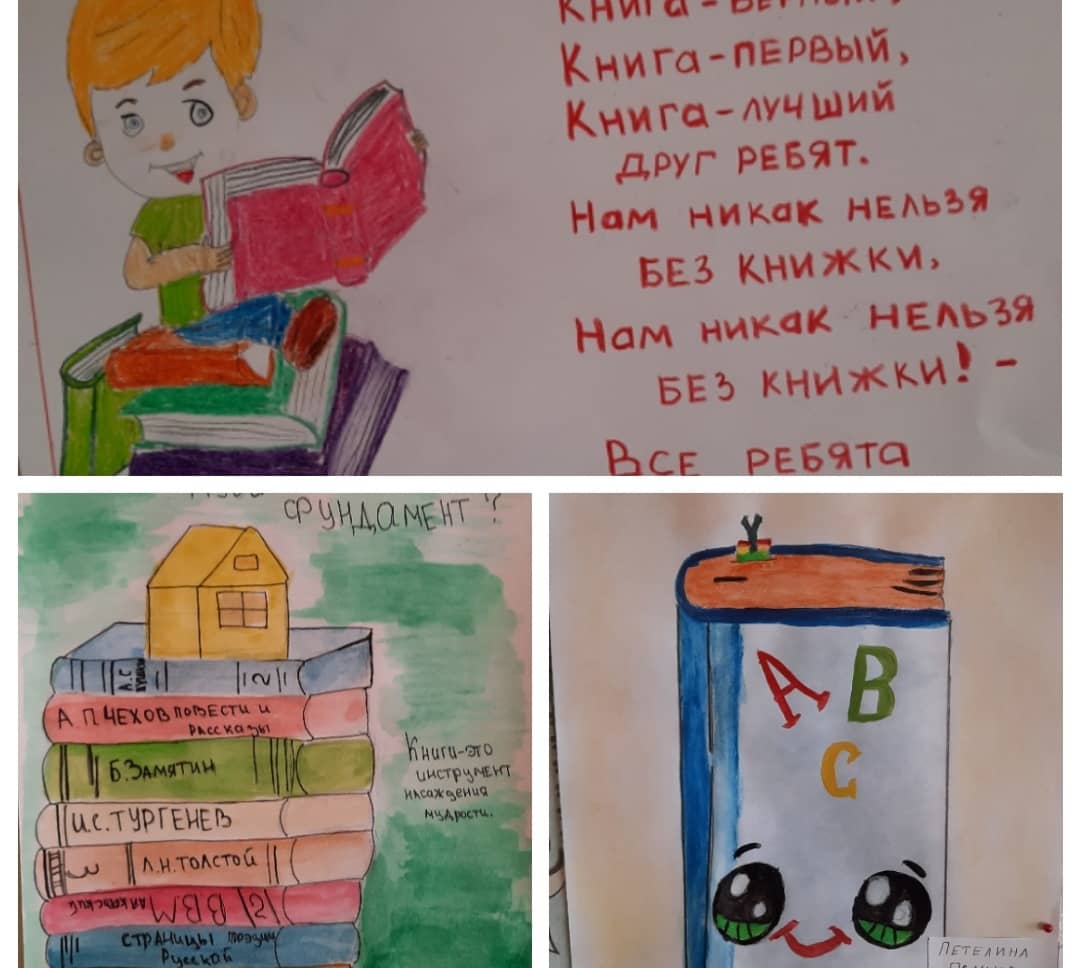 Книга-ПЕРВЫЙ,
Книга-ЛУЧШИЙ
ДРУГ РЕБЯТ.
Нам никак нельзя
БЕЗ КНИЖКИ,
Нам никак нельзя
БЕЗ КНИЖКИ! -
Все ребята
фундамент?
А.С
2
А П.ЧЕХОВ повести и
рассказы
Б.Замятин
И.С.ТУРГЕНЕВ
Л.Н.ТОЛСТОЙ
ВВМ
СТРАНИЦЫ поэзии
Русской
Книги-это
инструмент
насаждения
мудрости.
A B
C
ПЕТЕЛИНА